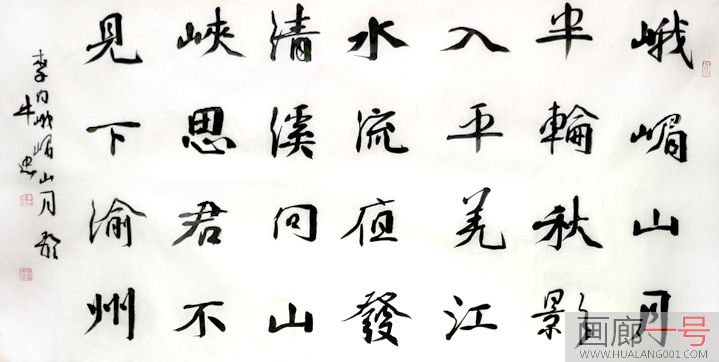 峨嵋山月
半輪秋影
入平羌江
水流夜發
清溪向山
峽思君不
見下渝州
李白峨嵋山月歌
画廊一号
WWW.HUALANG001.COM